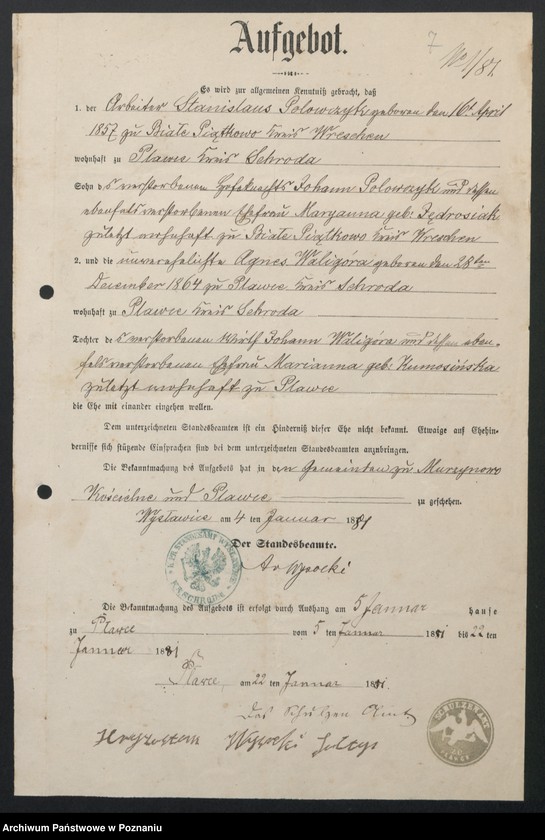 7
No 1/81.
Aufgebot.
Es wird zur allgemeinen Kenntniß gebracht, daß
1. der Arbeiter Stanislaus Polowczyk geboren den 16t April
1857 zu Białe Piątkowo Kreis Wreschen
wohnhaft zu Plawce Kreis Schroda
Sohn des verstorbenen Hofeknechts Johann Polowczyk und dessen
ebenfals verstorbenen Ehefrau Maryanna geb: Jędrosiak
zuletzt wohnhaft zu Białe Piątkowo Kreis Wreschen
2. und die unverehelichte Agnes Waligora geboren den 28ten
December 1864 zu Plawce Kreis Schroda
wohnhaft zu Plawce Kreis Schroda
Tochter des verstorbenen Wirth Johann Waligóra und dessen eben-
fals verstorbenen Ehefrau Marianna geb:
zuletzt wohnhaft zu Plawce
die Ehe mit einander eingehen wollen.
Dem unterzeichneten Standesbeamten ist ein Hinderniß dieser Ehe nicht bekannt. Etwaige auf Ehehin-
dernisse sich stützende Einsprachen sind bei dem unterzeichneten Standesbeamten anzubringen.
Die Bekanntmachung des Aufgebots hat in den Gemeinden zu Murzynowo
Kościelne und Plawce zu geschehen.
Wysławice am 4 ten Januar 1881
Der Standesbeamte.
Wysocki
Die Bekanntmachung des Aufgebots ist erfolgt durch Aushang am 5 Januar hause
zu Plawce vom 5 ten Januar 1881 bis 22 ten
Januar 1881
Plawce am 22 ten Januar 1881.
Das Schulzen Amt
Wysocki
SCHULZENAMT
Archiwum Państwowe w Poznaniu